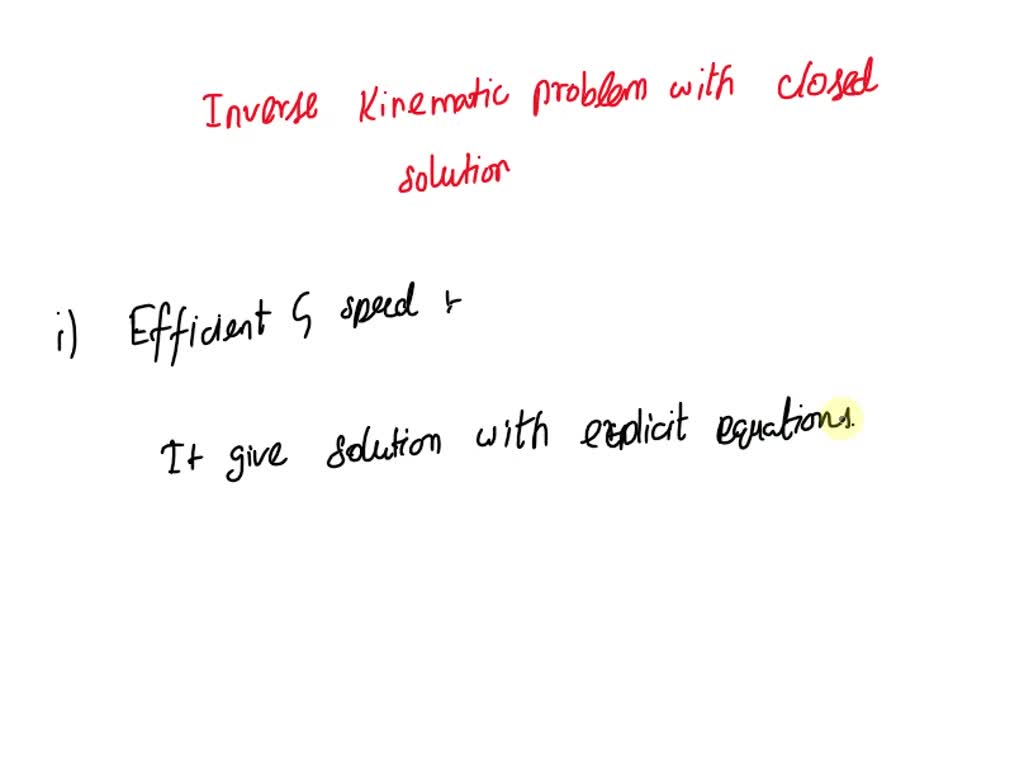 Inverse Kinematic problem with closed
solution
i) Efficient & speed :-
It give solution with explicit equations.